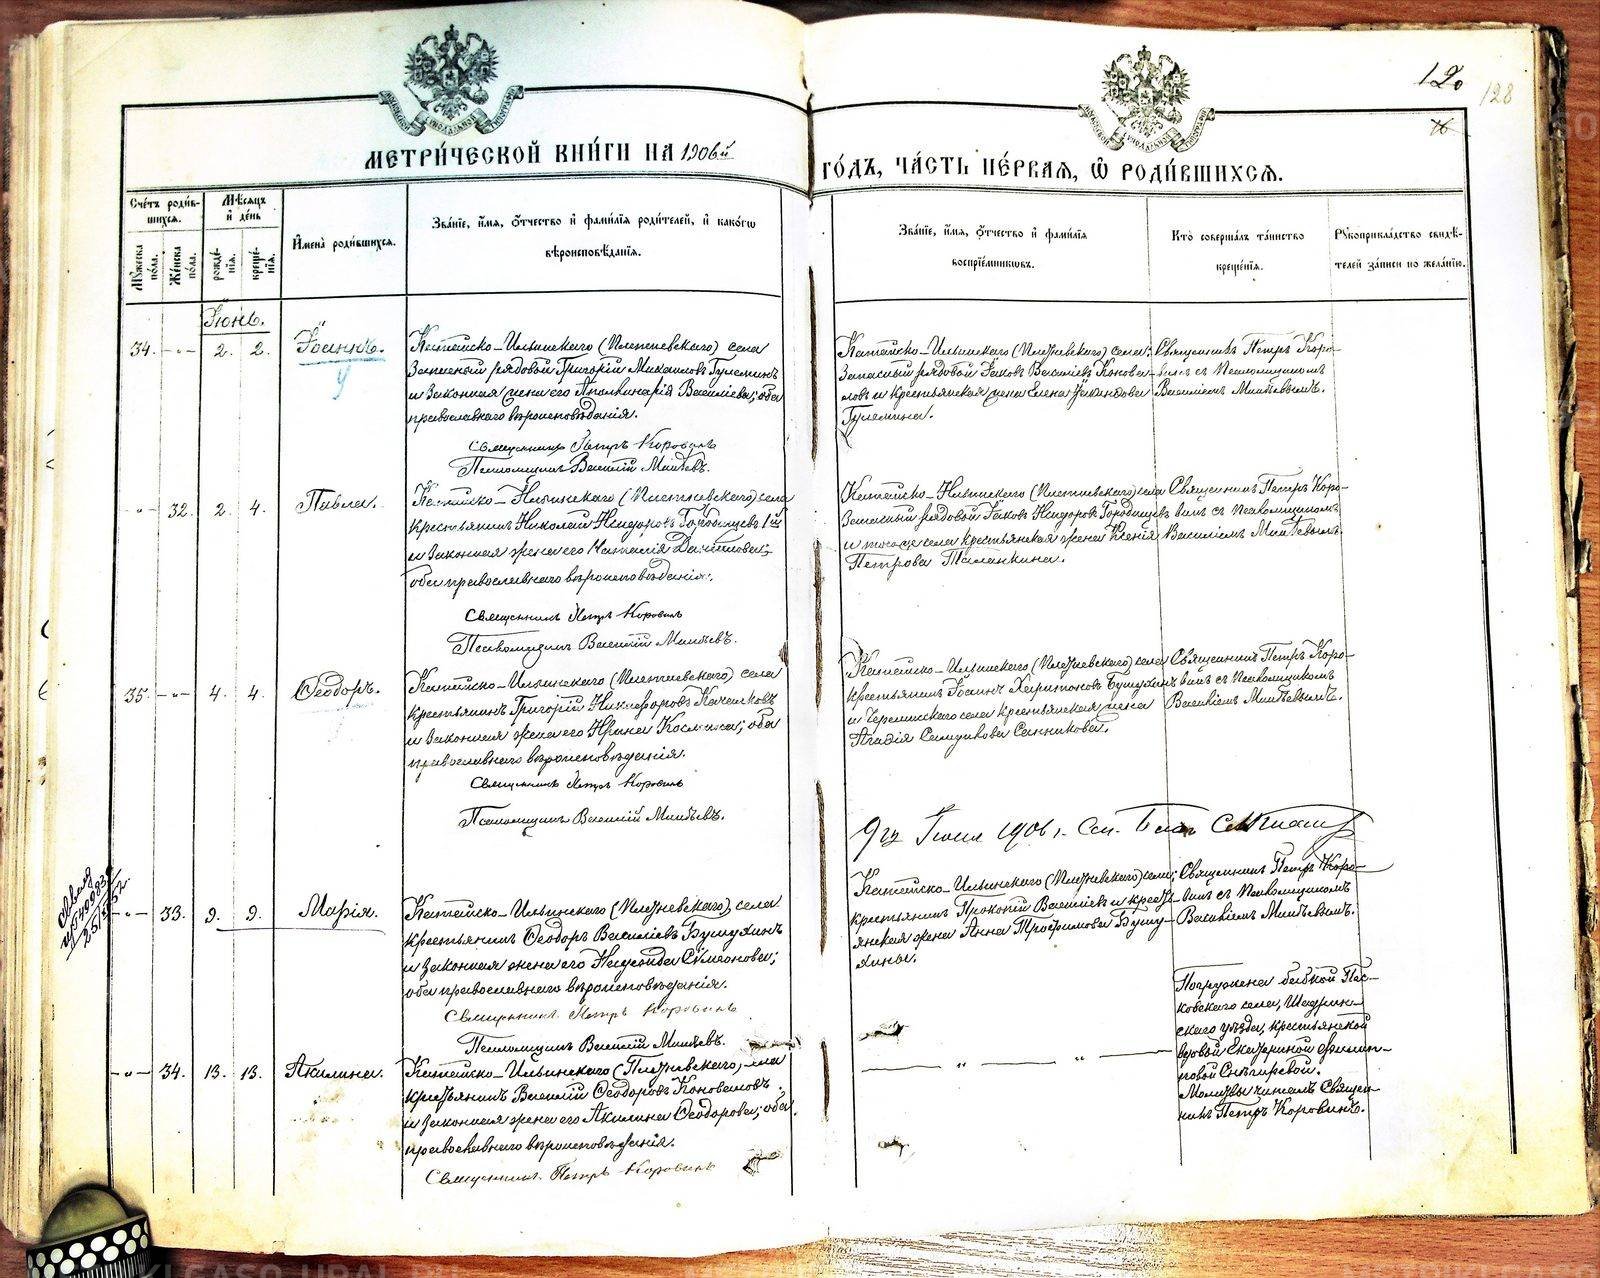 120
128
16
МЕТРИ́ЧЕСКОЙ КНИ́ГИ НА 1906й
ГО́ДЪ, ЧА́СТЬ ПЕ́РВАЯ, Ѽ РОДИ́ВШИХСЯ.
Сче́тъ роди́в-
шихся.
Мѣ́сяцъ
и҆ де́нь
Му́жеска
по́ла.
Же́нска
по́ла.
рожде́-
нїя.
креще́-
нїя.
И҆мена̀ роди́вшихся.
Зва́нїе, и҆́мя, ѻ҆́тчество и҆ фами́лїя роди́телей, и҆ како́гѡ
вѣроисповѣ́данїя.
Зва́нїе, и҆́мя, ѻ҆́тчество и҆ фами́лїя
воспрїе́мниковъ.
Кто̀ соверша́лъ та́инство
креще́нїя.
Рꙋкоприкла́дство свидѣ́-
телей за́писи по жела́нїю.
Іюнь.
34. -„- 2. 2. Іоаннъ.
Катайско-Ильинскаго (Плетневскаго) села
Запасный рядовой Григорій Михаиловъ Гулеминъ
и законная жена его Аполлинарія Васильева; оба
православнаго вѣроисповѣданія.
Священникъ Петръ Коровинъ
Псаломщикъ Василій
Катайско-Ильинскаго (Плетневскаго) села
Запасный рядовой Іаковъ Васильевъ Конова-
ловъ и крестьянская жена Елена
Гулемина.
Священникъ Петръ Коро-
винъ съ Псаломщикомъ
Василіемъ
-„- 32. 2. 4. Павла.
Катайско-Ильинскаго (Плетневскаго) села
крестьянинъ Николай Исидоровъ Городищевъ 1й
и законная жена его Наталія Данилова;
оба православнаго вѣроисповѣданія.
Священникъ Петръ Коровинъ
Псаломщикъ Василій
Катайско-Ильинскаго (Плетневскаго) села
Запасный рядовой Іаковъ Исидоровъ Городищевъ
и того же села крестьянская жена Ксенія
Петрова Таланкина.
Священникъ Петръ Коро-
винъ съ Псаломщикомъ
Василіемъ
35. -„- 4. 4. Ѳеодоръ.
Катайско-Ильинскаго (Плетневскаго) села
крестьянинъ Григорій Никифоровъ
и законная жена его Ирина Космина; оба
православнаго вѣроисповѣданія.
Священникъ Петръ Коровинъ
Псаломщикъ Василій
Катайско-Ильинскаго (Плетневскаго) села
крестьянинъ Іоаннъ Харитоновъ Бушухинъ
и села крестьянская жена
Агафія Санникова.
Священникъ Петръ Коро-
винъ съ Псаломщикомъ
Василіемъ
9го Іюня 1906 г.
-„- 33. 9. 9. Марія.
Катайско-Ильинскаго (Плетневскаго) села
крестьянинъ Ѳеодоръ Васильевъ Бушухинъ
и законная жена его Сѵмеонова;
оба православнаго вѣроисповѣданія.
Священникъ Петръ Коровинъ
Псаломщикъ Василій
Катайско-Ильинскаго (Плетневскаго) села;
крестьянинъ Прокопій Васильевъ и кресть-
янская жена Анна Трофимова Бушу-
хины.
Священникъ Петръ Коро-
винъ съ Псаломщикомъ
Василіемъ
-„- 34. 13. 13. Акилина.
Катайско-Ильинскаго (Плетневскаго) села
крестьянинъ Василій Ѳеодоровъ Коноваловъ
и законная жена его Акилина Ѳеодорова; оба
православнаго вѣроисповѣданія.
Священникъ Петръ Коровинъ
Погружена бабкой Пес-
ковскаго села, Шадрин-
скаго уѣзда, крестьянской
вдовой Екатериной Филип-
повой Снѣгиревой.
Молитвы читалъ Священ-
никъ Петръ Коровинъ.